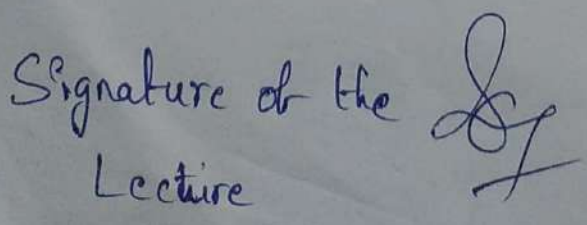 Signature of the
Lecture